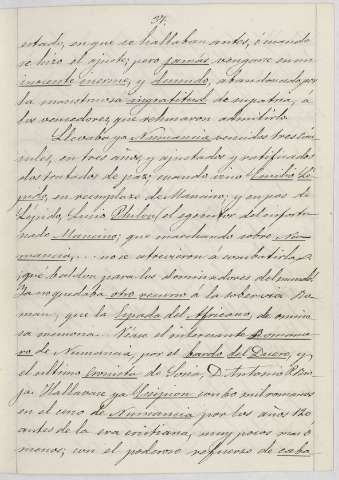 34.
estado, en que se hallaban antes, ó cuando
se hizo el ajuste; pero jamás vengarse en un
inocente inerme, y desnudo, abandonado, por
la monstruosa ingratitud de su patria, á
los vencedores, que rehusaron admitirlo.
Llevaba ya Numancia vencidos tres Cón-
sules, en tres años, y ajustados y ratificados
dos tratados de paz; cuando vino Emilio Lé-
pido, en reemplazo de Mancino; y en pos de
Lépido, Lucio Philon, el ejecutor del infortu-
nado Mancino; que marchando sobre Nu-
mancia,... no se atrevieron á combatirla
¡qué baldon para los dominadores del mundo!
Ya no quedaba otro recurso á la soberbia Ro-
mana, que la Espada del Africano, de
memoria. Véase el interesante Romance-
ro de Numancia, por el bardo del Duero, y,
el último Cronista de Soria, D. Antonio
Hallábase ya Escipion con mil romanos
en el cerco de Numancia por los años 130
antes de la era cristiana, muy pocos mas ó
menos; con el poderoso refuerzo de caba-